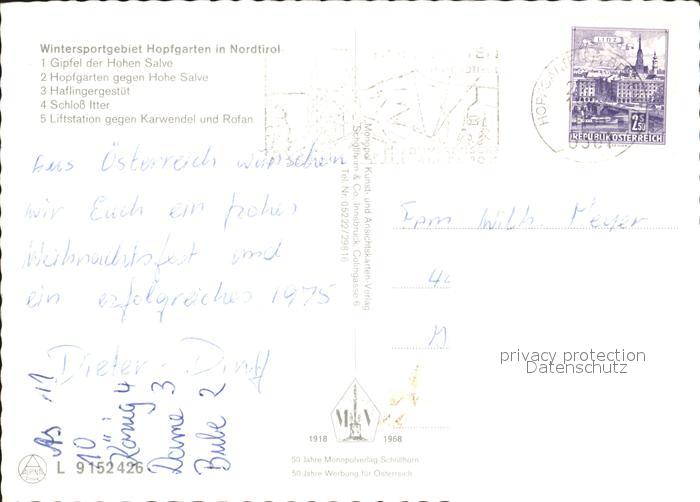 Wintersportgebiet Hopfgarten in Nordtirol
1 Gipfel der Hohen Salve
2 Hopfgarten gegen Hohe Salve
3 Haflingergestüt
4 Schloß Itter
5 Liftstation gegen Karwendel und Rofan
LINZ
2.50 S
REPUBLIK ÖSTERREICH
Aus Österreich wünschen
wir Euch ein frohes
Weihnachtsfest und
ein erfolgreiches 1975
Dieter
Monopol Kunst- und Ansichtskarten-Verlag
Schöllhorn & Co. Innsbruck, Colingasse 6
Tel. Nr. 05222/29816
Fam Wilh. Meyer
44
M
privacy protection
Datenschutz
As 11
10
König 4
Dame 3
Bube 2
L 9152426
1918 MV 1968
50 Jahre Monopolverlag Schöllhorn
50 Jahre Werbung für Österreich